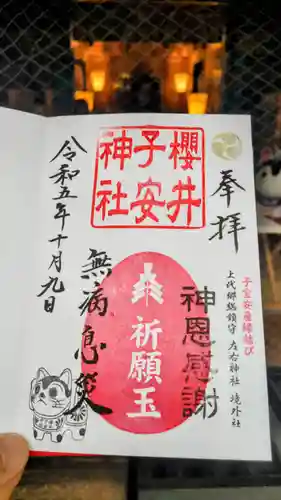 奉拝
子宝安産縁結び
上代郷総鎮守 左右神社 境外社
櫻井
子安
神社
神恩感謝
祈願玉
無病息災
令和五年十月九日